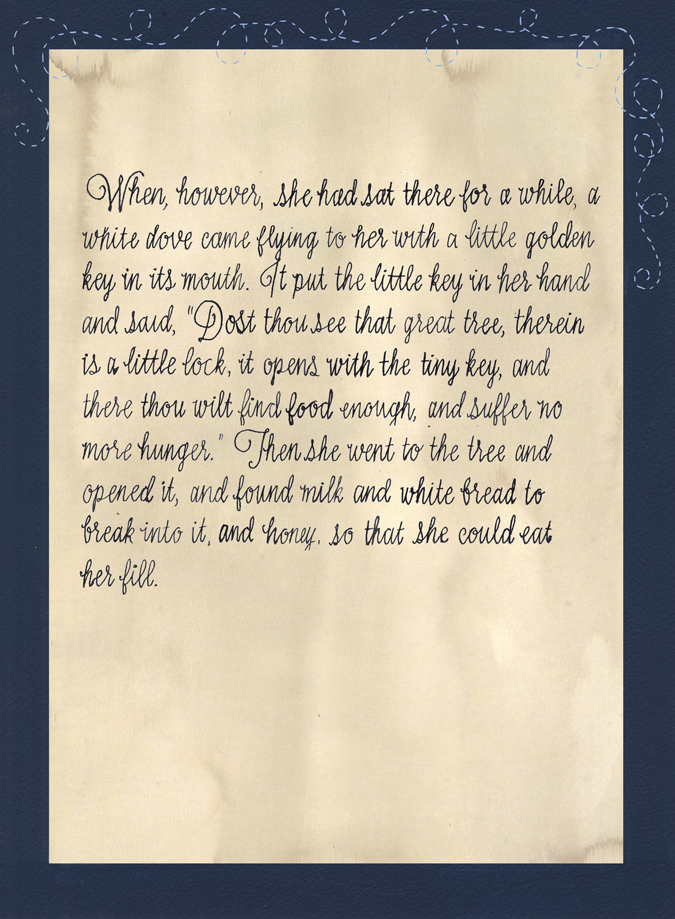 When, however, she had sat there for a while, a
white dove came flying to her with a little golden
key in its mouth. It put the little key in her hand
and said, "Dost thou see that great tree, therein
is a little lock, it opens with the tiny key, and
there thou wilt find food enough, and suffer no
more hunger." Then she went to the tree and
opened it, and found milk and white bread to
break into it, and honey, so that she could eat
her fill.